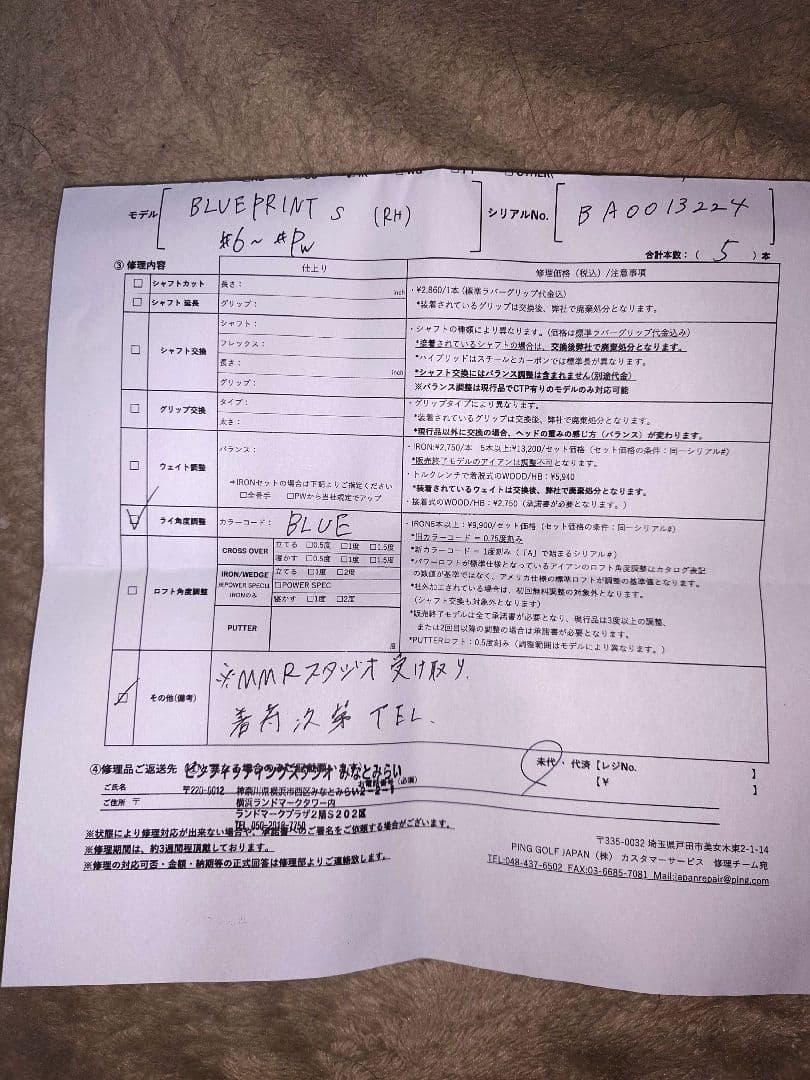 モデル BLUEPRINT S (RH) シリアルNo. BA0013224
#6~#PW
合計本数：( 5 ) 本
③修理内容
仕上り 修理価格（税込）/注意事項
□ シャフトカット 長さ： inch
□ シャフト延長 グリップ：
・¥2,860/1本 (標準ラバーグリップ代金込)
*装着されているグリップは交換後、弊社で廃棄処分となります。
□ シャフト交換
シャフト：
フレックス：
長さ： inch
グリップ：
・シャフトの種類により異なります。(価格は標準ラバーグリップ代金込み)
*装着されているシャフトの場合は、交換後弊社で廃棄処分となります。
*ハイブリッドはスチールとカーボンでは標準長が異なります。
*シャフト交換にはバランス調整は含まれません(別途代金)
※バランス調整は現行品でCTP有りのモデルのみ対応可能
□ グリップ交換
タイプ：
太さ：
・グリップタイプにより異なります。
*装着されているグリップは交換後、弊社で廃棄処分となります。
*現行品以外に交換の場合、ヘッドの重みの感じ方（バランス）が変わります。
□ ウェイト調整
バランス：
⇒IRONセットの場合は下記よりご指定ください
□全番手 □PWから当社規定でアップ
・IRON:¥2,750/本 5本以上:¥13,200/セット価格（セット価格の条件：同一シリアル#）
*販売終了モデルのアイアンは調整不可となります。
・トルクレンチで着脱式のWOOD/HB：¥5,940
*装着されているウェイトは交換後、弊社で廃棄処分となります。
・接着式のWOOD/HB：¥2,750（承諾書が必要となります。）
ライ角度調整 カラーコード： BLUE
・IRON5本以上：¥9,900/セット価格（セット価格の条件：同一シリアル#）
*旧カラーコード = 0.75度刻み
*新カラーコード = 1度刻み（「A」で始まるシリアル#）
□ ロフト角度調整
CROSS OVER
立てる □0.5度 □1度 □1.5度
寝かす □0.5度 □1度 □1.5度
IRON/WEDGE
IRONのみ
立てる □1度 □2度
□POWER SPEC
寝かす □1度 □2度
PUTTER 度
*パワーロフトが標準仕様となっているアイアンのロフト角度調整はカタログ表記
の数値が基準ではなく、アメリカ仕様の標準ロフトが調整の基準値となります。
*社外加工されている場合は、初回無料調整の対象外となります。
（シャフト交換も対象外となります）
*販売終了モデルは全て承諾書が必要となり、現行品は3度以上の調整、
または2回目以降の調整の場合は承諾書が必要となります。
*PUTTERロフト：0.5度刻み（調整範囲はモデルにより異なります。）
その他(備考)
※MMRスタジオ受け取り.
着荷次第TEL.
④修理品ご返送先
ピンフィッティングスタジオ みなとみらい
未代・代済【レジNo. 】
【¥ 】
ご氏名
〒220-0012 神奈川県横浜市西区みなとみらい2-2-1
ご住所 〒
横浜ランドマークタワー内
ランドマークプラザ2階S202区
TEL 050-2018-7750
※状態により修理対応が出来ない場合や、承諾書へのご署名をご依頼する場合がございます。
※修理期間は、約3週間程頂戴しております。
※修理の対応可否・金額・納期等の正式回答は修理部よりご連絡致します。
〒335-0032 埼玉県戸田市美女木東2-1-14
PING GOLF JAPAN（株） カスタマーサービス 修理チーム宛
TEL:048-437-6502 FAX:03-6685-7081 Mail:japanrepair@ping.com